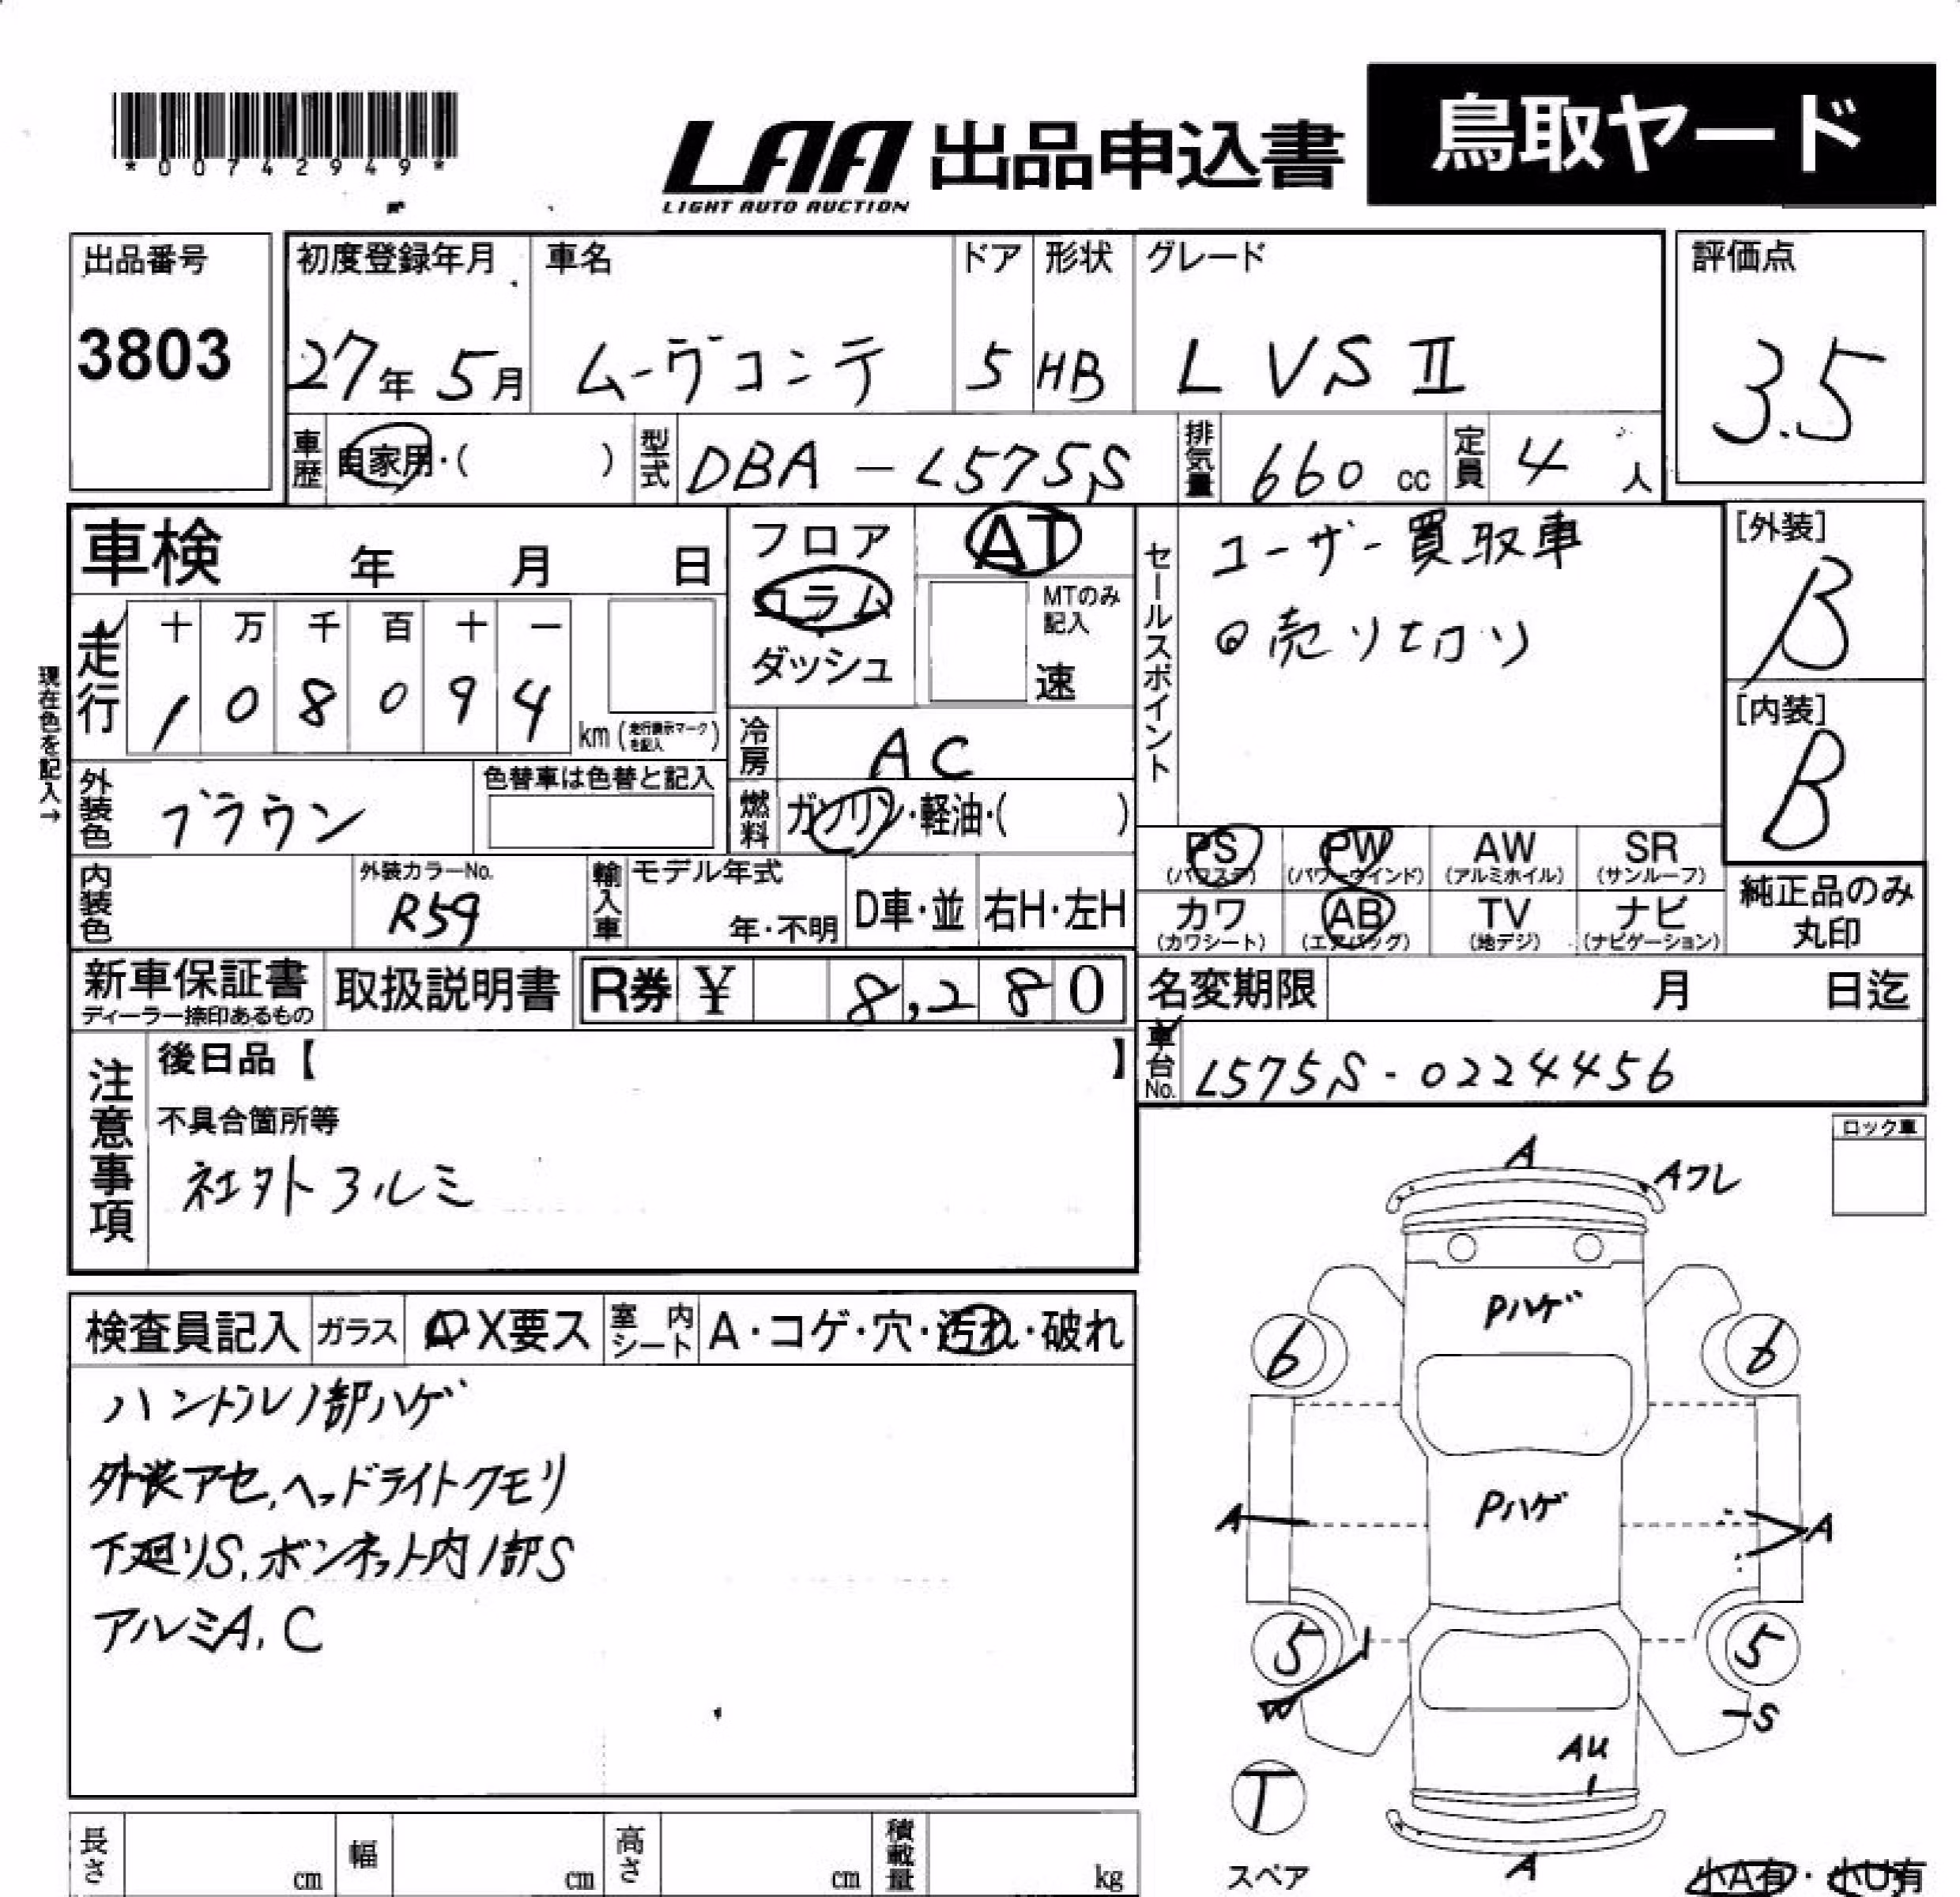 *00742949*
LAA 出品申込書 鳥取ヤード
LIGHT AUTO AUCTION
出品番号 初度登録年月 車名 ドア 形状 グレード 評価点
3803 27年 5月 ムーヴコンテ 5 HB L VS II 3.5
車歴 自家用・( ) 型式 DBA-L575S 排気量 660 cc 定員 4 人
車検 年 月 日
フロア AT
コラム
ダッシュ
MTのみ
記入
速
セールスポイント
ユーザー買取車
◎売り切り
[外装]
B
[内装]
B
現在色を記入→
走行 十 万 千 百 十 一
1 0 8 0 9 4 km (走行表示マークを記入)
冷房 AC
外装色 ブラウン 色替車は色替と記入
燃料 ガソリン・軽油・( )
PS PW AW SR
(パワステ) (パワーウインド) (アルミホイル) (サンルーフ)
カワ AB TV ナビ
(カワシート) (エアバッグ) (地デジ) (ナビゲーション)
純正品のみ
丸印
内装色 外装カラーNo. R59 輸入車 モデル年式 年・不明 D車・並 右H・左H
新車保証書 取扱説明書 R券 ¥ 8,280
ディーラー捺印あるもの
名変期限 月 日迄
車台No. L575S-0224456
注意事項
後日品【 】
不具合箇所等
社外アルミ
ロック車
検査員記入 ガラス A・X要ス 室内シート A・コゲ・穴・汚れ・破れ
ハンドル1部ハゲ
外装アセ,ヘッドライトクモリ
下廻りS,ボンネット内1部S
アルミA,C
A
Aワレ
Pハゲ
6 6
Pハゲ
A A
5 5
W
S
AU
1
T
A
スペア
小A有・小U有
長さ cm 幅 cm 高さ cm 積載量 kg